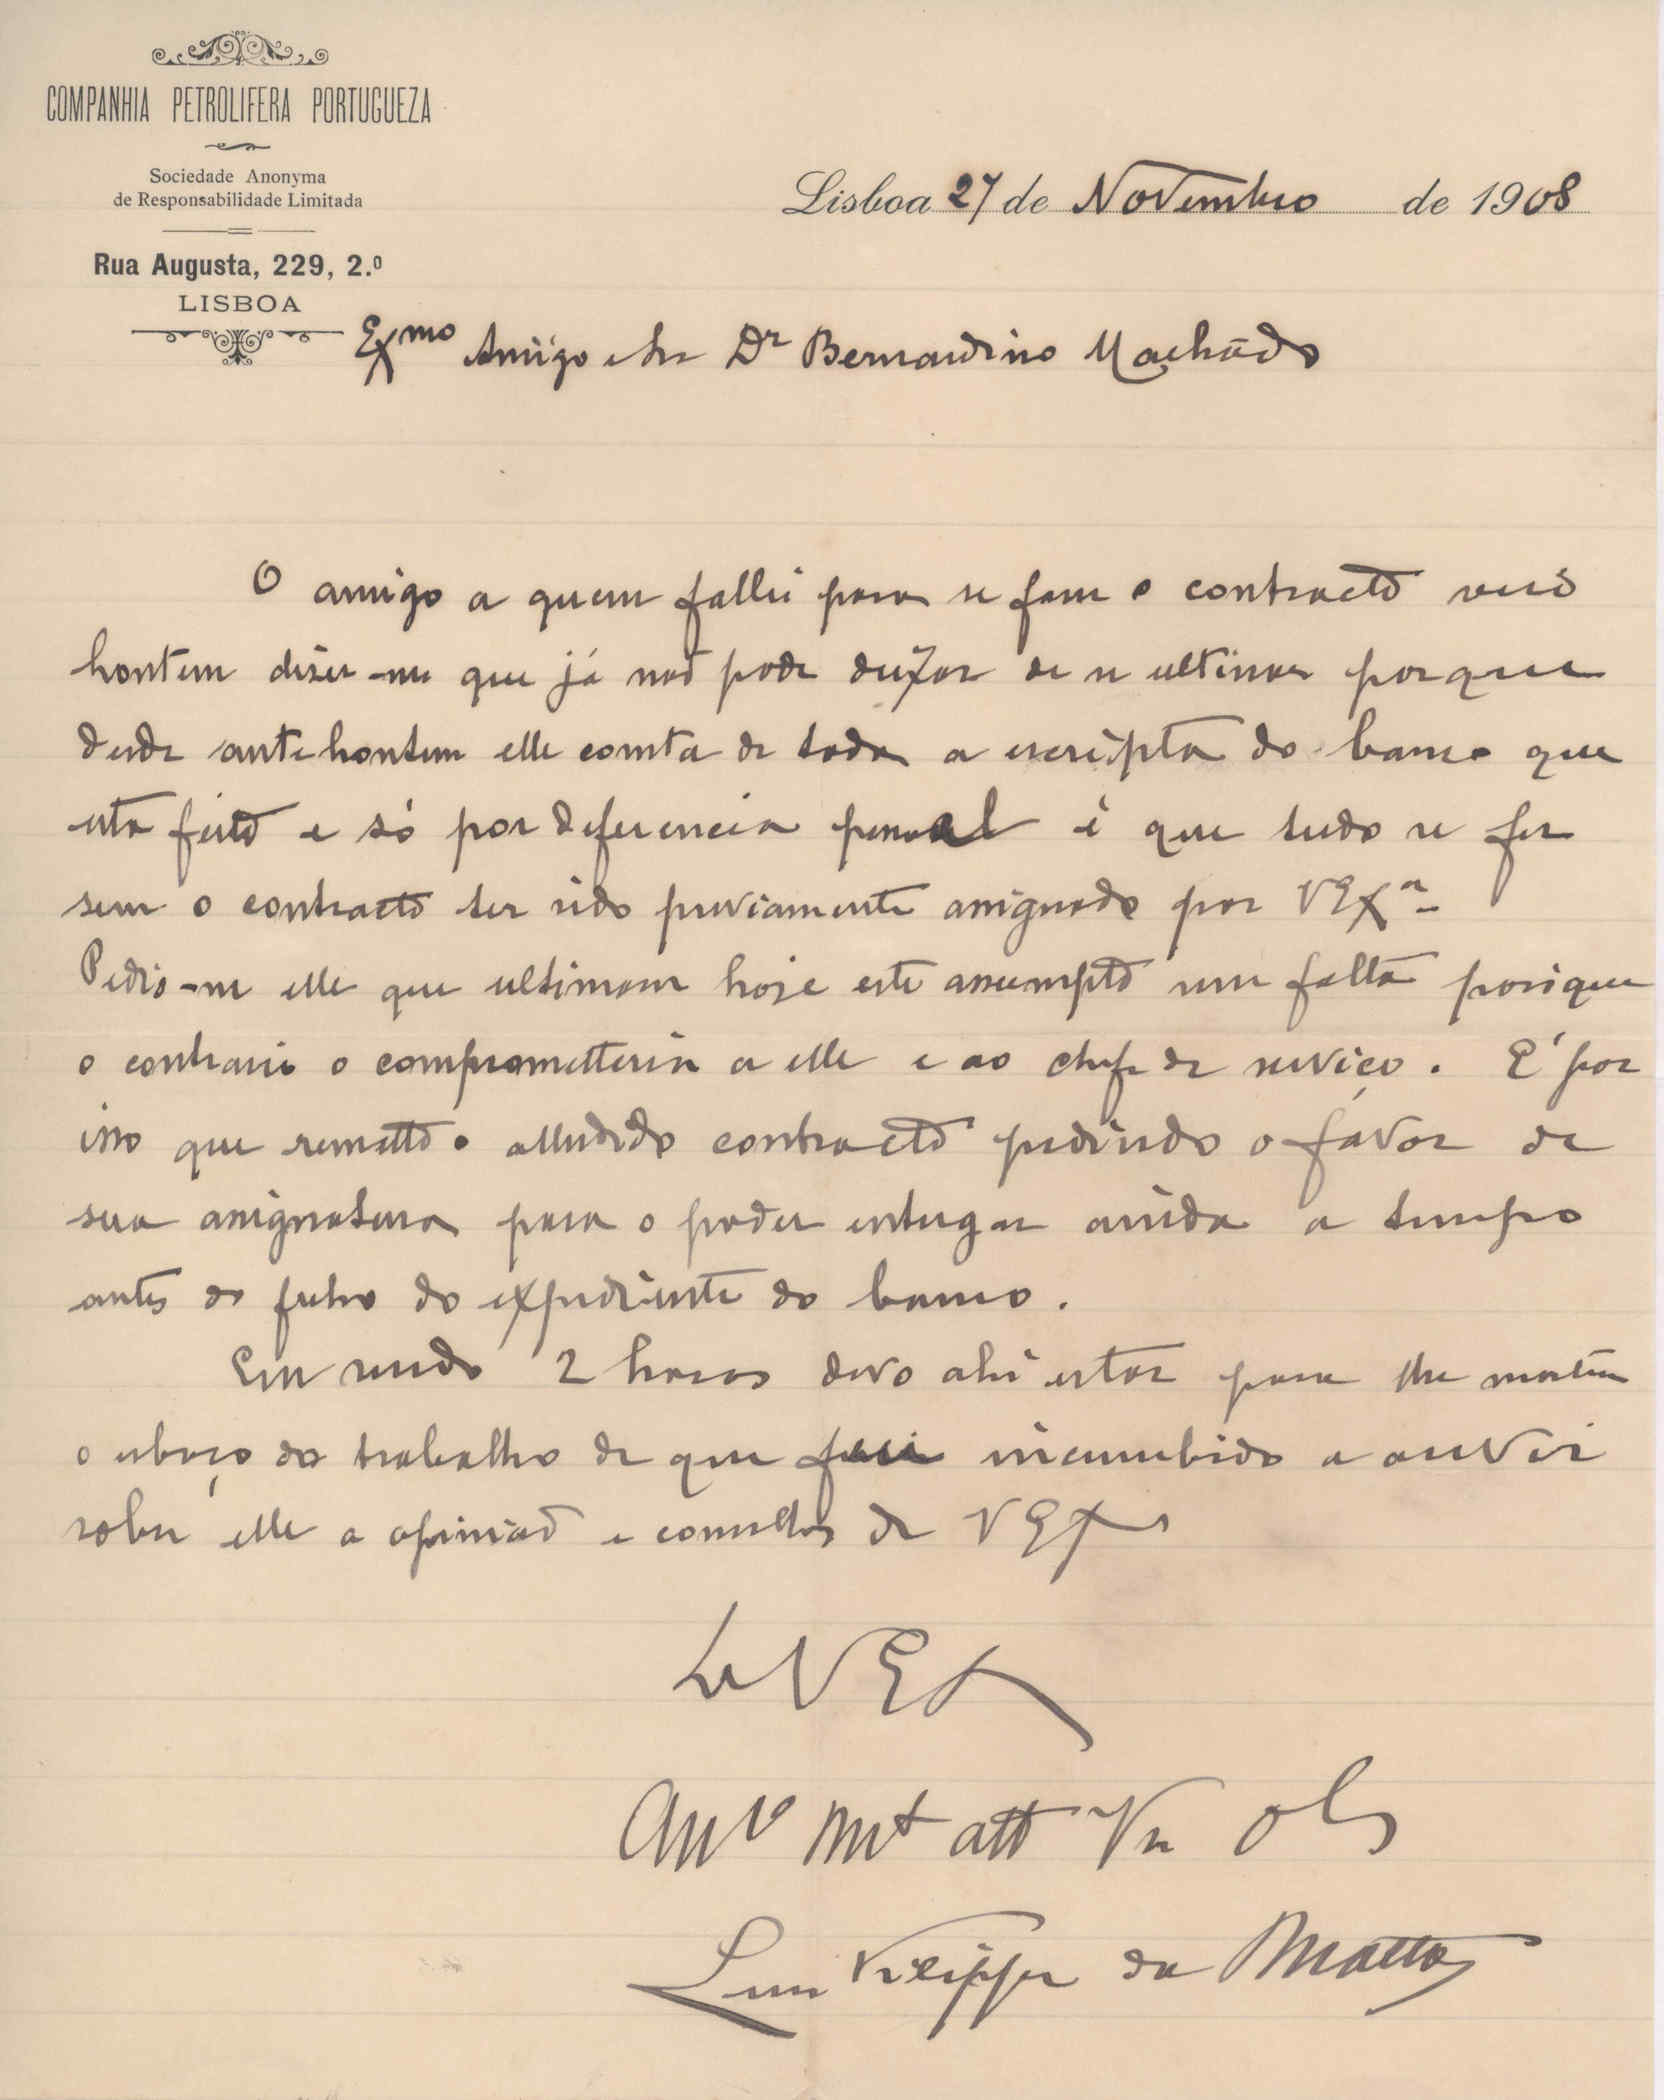 COMPANHIA PETROLIFERA PORTUGUEZA
Sociedade Anonyma
de Responsabilidade Limitada
Rua Augusta, 229, 2.º
LISBOA
Lisboa 27 de Novembro de 1908
Exmo Amigo e Snr Dr Bernardino Machado
O amigo a quem fallei para se fazer o contracto veio
hontem dizer-me que já não pode deixar de se ultimar porque
desde antehontem elle consta de toda a escripta do banco que
esta feito e só por deferencia pessoal é que tudo se fez
sem o contracto ter sido previamente assignado por VExa
Pedio-me elle que ultimasse hoje este assumpto sem falta porque
o contrario o comprometteria a elle e ao chefe de serviço. E' por
isso que remetto o alludido contracto pedindo o favor de
sua assignatura para o poder entregar ainda a tempo
antes do fecho do expediente do banco.
Em sendo 2 horas devo ahi estar para lhe mostrar
o esboço do trabalho de que fui incumbido e ouvir
sobre elle a opinião e conselhos de VExa
De VExa
Amo Mto atto Vor obo
Luis Filippe da Matta